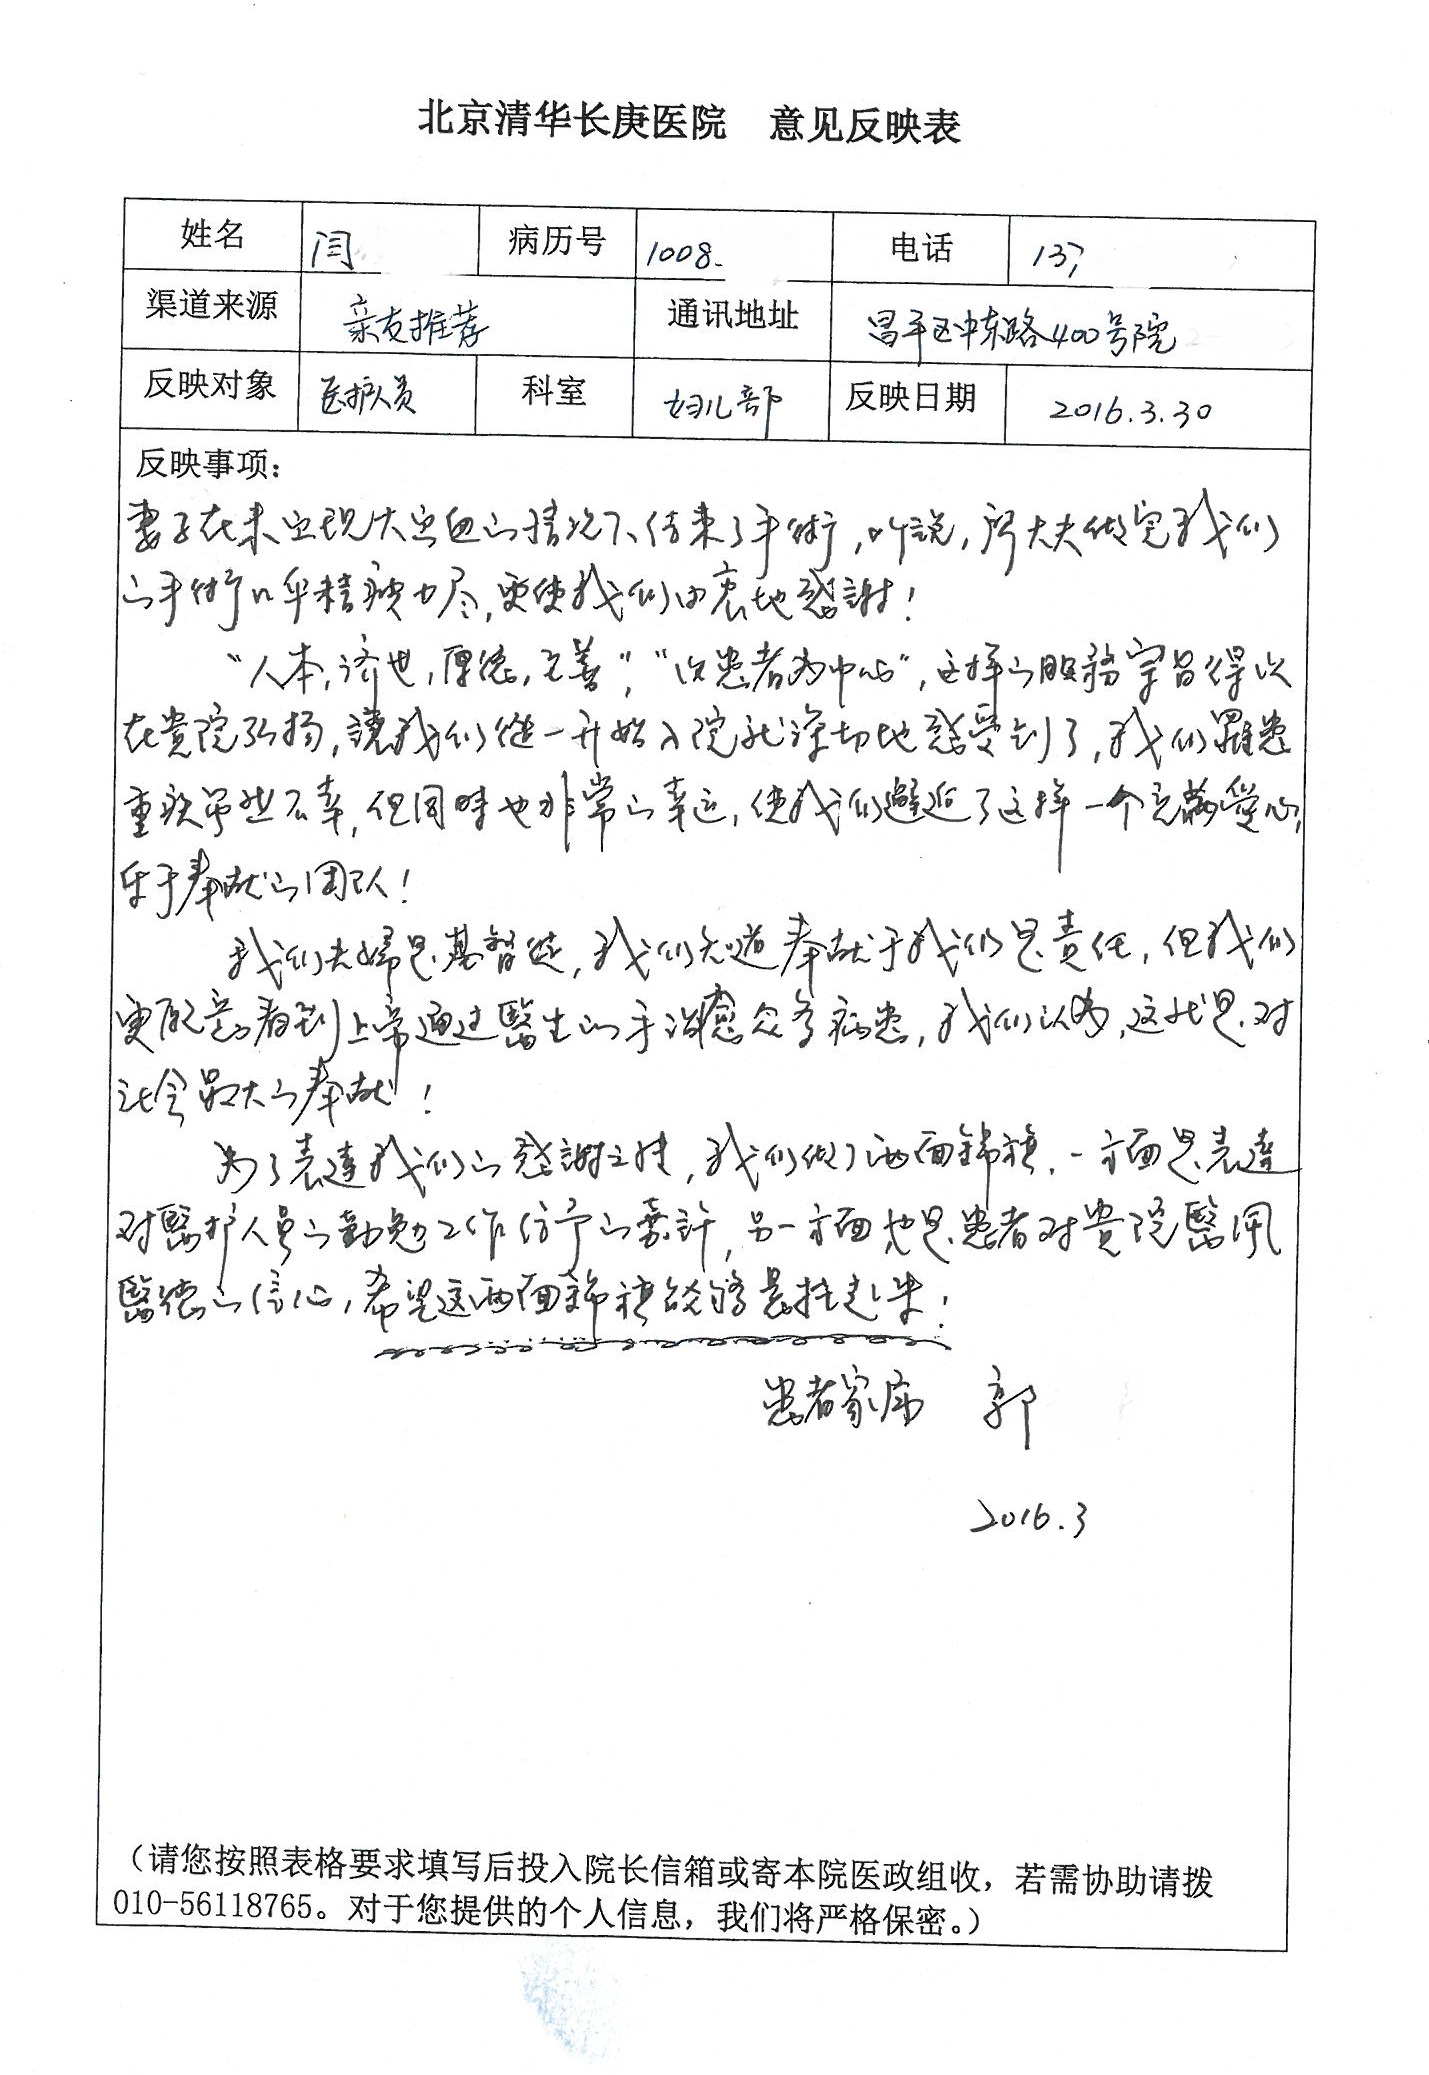 北京清华长庚医院 意见反映表
姓名 闫 病历号 1008. 电话 137
渠道来源 亲友推荐 通讯地址 昌平区中东路400号院
反映对象 医护人员 科室 妇儿部 反映日期 2016.3.30
反映事项：
妻子在未出现大出血的情况下结束了手術，听説，所大夫做完我们
的手術已筋疲力尽，更使我们由衷地感謝！
“人本，济世，厚德，至善”，“以患者为中心”，这样的服務宗旨得以
在贵院弘扬，讓我们從一开始入院就深切地感受到了，我们罹患
重疾虽然不幸，但同時也非常的幸运，使我们邂逅了这样一个充满愛心，
乐于奉献的团队！
我们夫婦是基督徒，我们知道奉献于我们是责任，但我们
更愿意看到上帝通过醫生的手治癒众多病患，我们认为，这就是对
社会最大的奉献！
为了表達我们的感謝之情，我们做了两面锦旗，一方面是表達
对醫护人員的勤勉工作给予的嘉許，另一方面也是患者对贵院醫風
醫德的信心，希望这两面锦旗能够悬挂起来！
患者家属 郭
2016.3
（请您按照表格要求填写后投入院长信箱或寄本院医政组收，若需协助请拨
010-56118765。对于您提供的个人信息，我们将严格保密。）